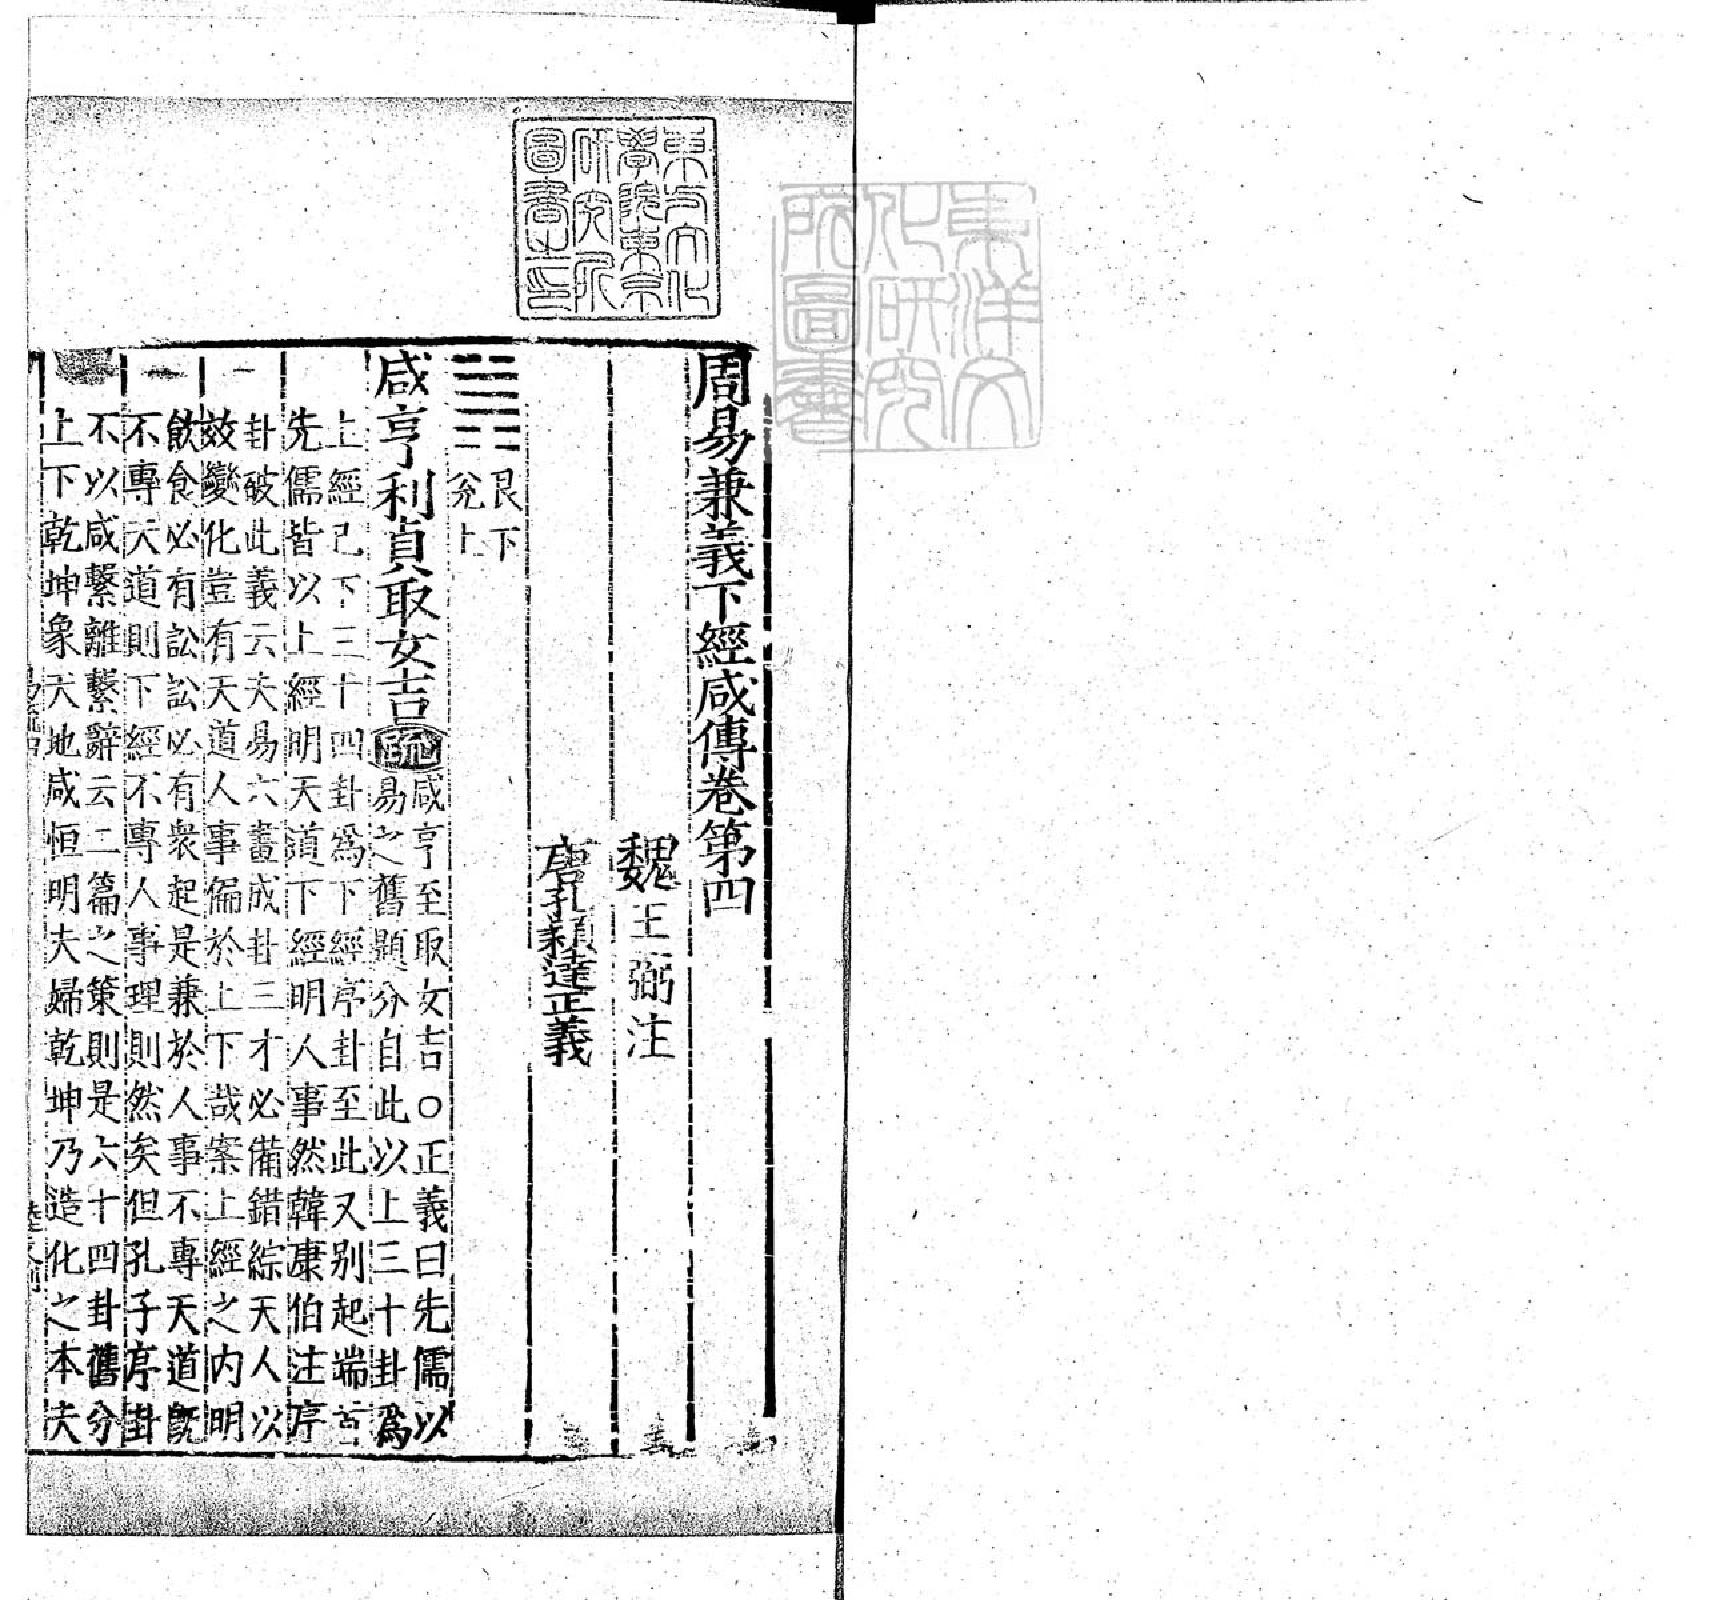 周易兼義下經咸傳卷第四
魏王弼注
唐孔穎達正義
艮下
兊上
咸亨利貞取女吉疏
咸亨至取女吉○正義曰先儒以
易之舊題分自此以上三十卦爲
上經已下三十四卦爲下經序卦至此又别起端首
先儒皆以上經明天道下經明人事然韓康伯注序
卦破此義云夫易六畫成卦三才必備錯綜天人以
效變化豈有天道人事偏於上下哉案上經之内明
飲食必有訟訟必有衆起是兼於人事不專天道旣
不專天道則下經不專人事理則然矣但孔子序卦
不以咸繫離繫辭云二篇之策則是六十四卦舊分
上下乾坤象天地咸恒明夫婦乾坤乃造化之本夫
東方文化
學院東京
研究所
圖書之印
東洋文
化研究
所圖書